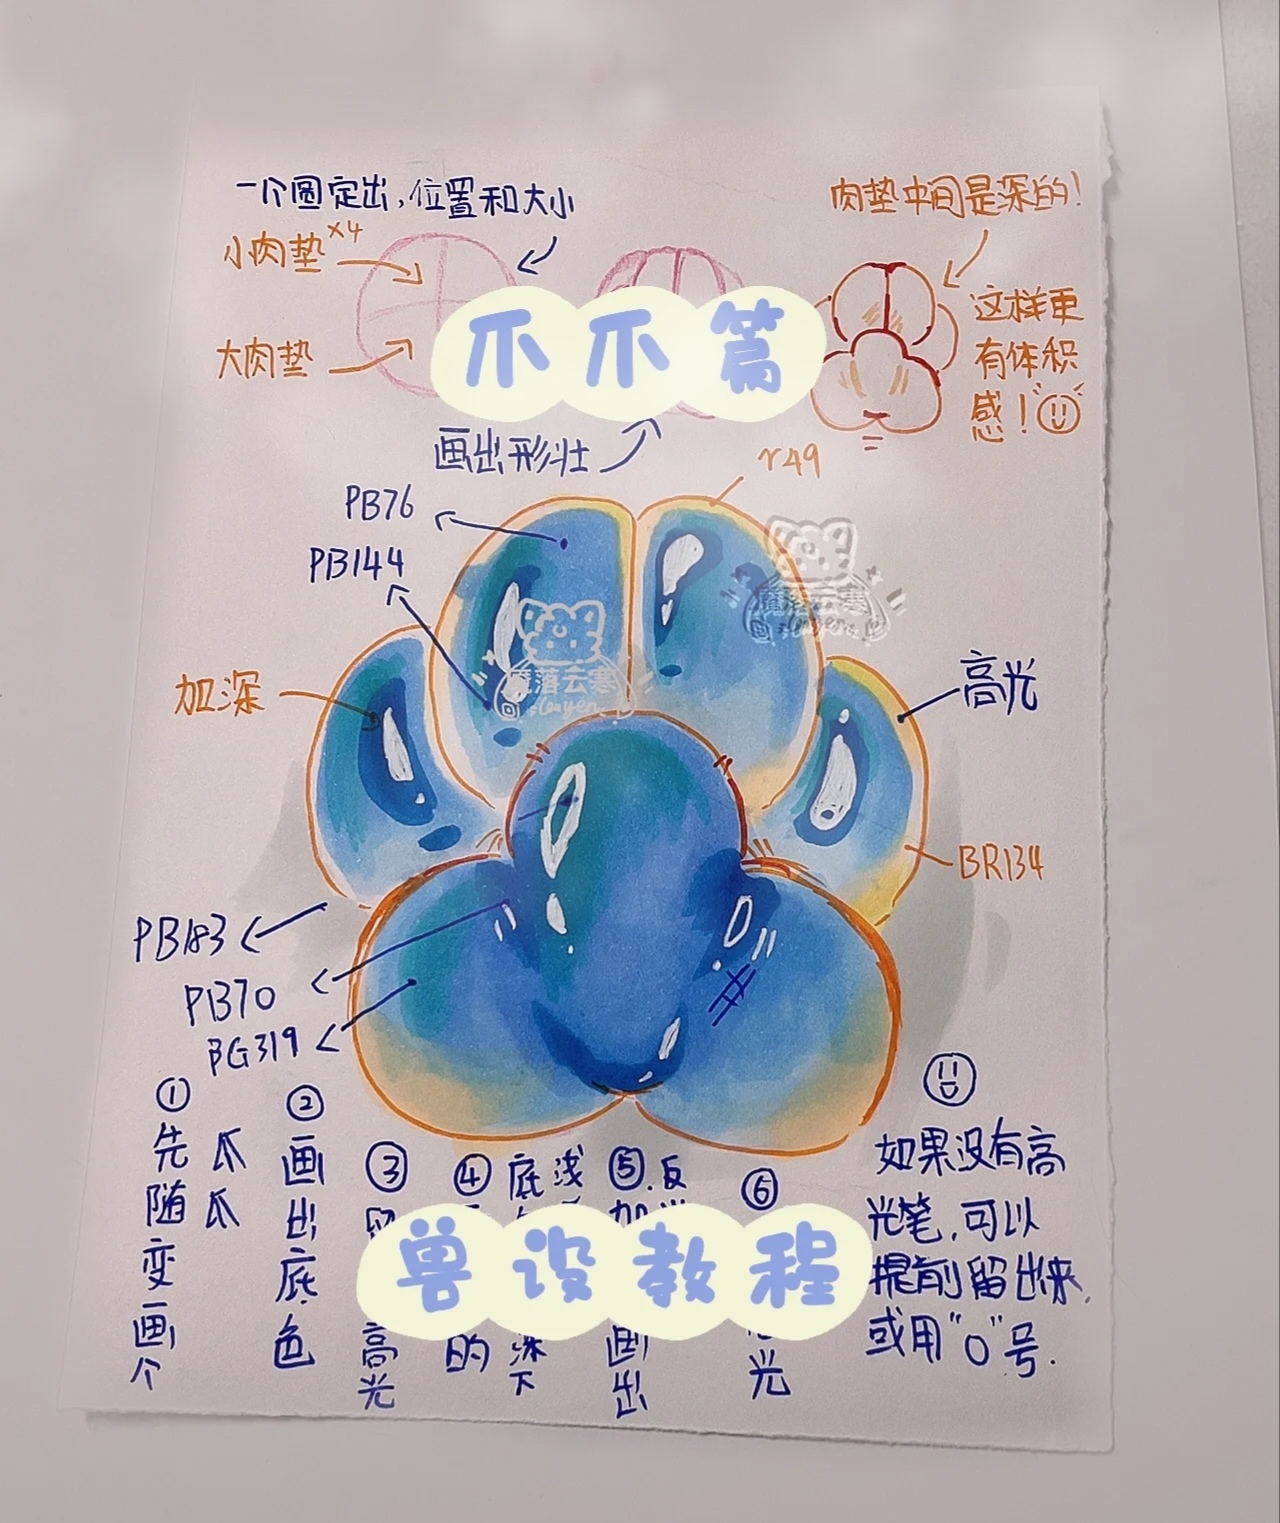 一个圆定出,位置和大小
小肉垫×4
大肉垫
画出形壮
肉垫中间是深的!
这样更
有体积
感!
爪爪篇
PB76
PB144
r49
魔落云寒
魔落云寒
加深
高光
BR134
PB183
PB70
BG319
①先随变画个
爪爪
②画出底色
③
高光
④
的
底
浅
深下
⑤.反
加
画出
⑥
光
兽设教程
如果没有高
光笔,可以
提前留出来,
或用"0"号.